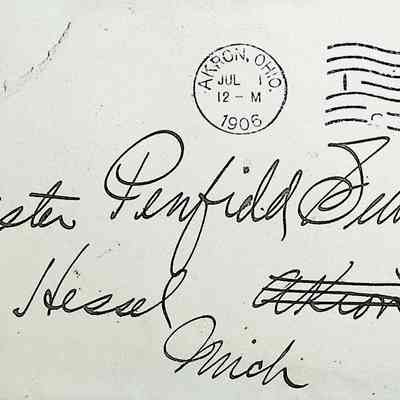 AKRON, OHIO
JUL 1
12 - M
1906
ster Penfield
Hessel Akron
Mich